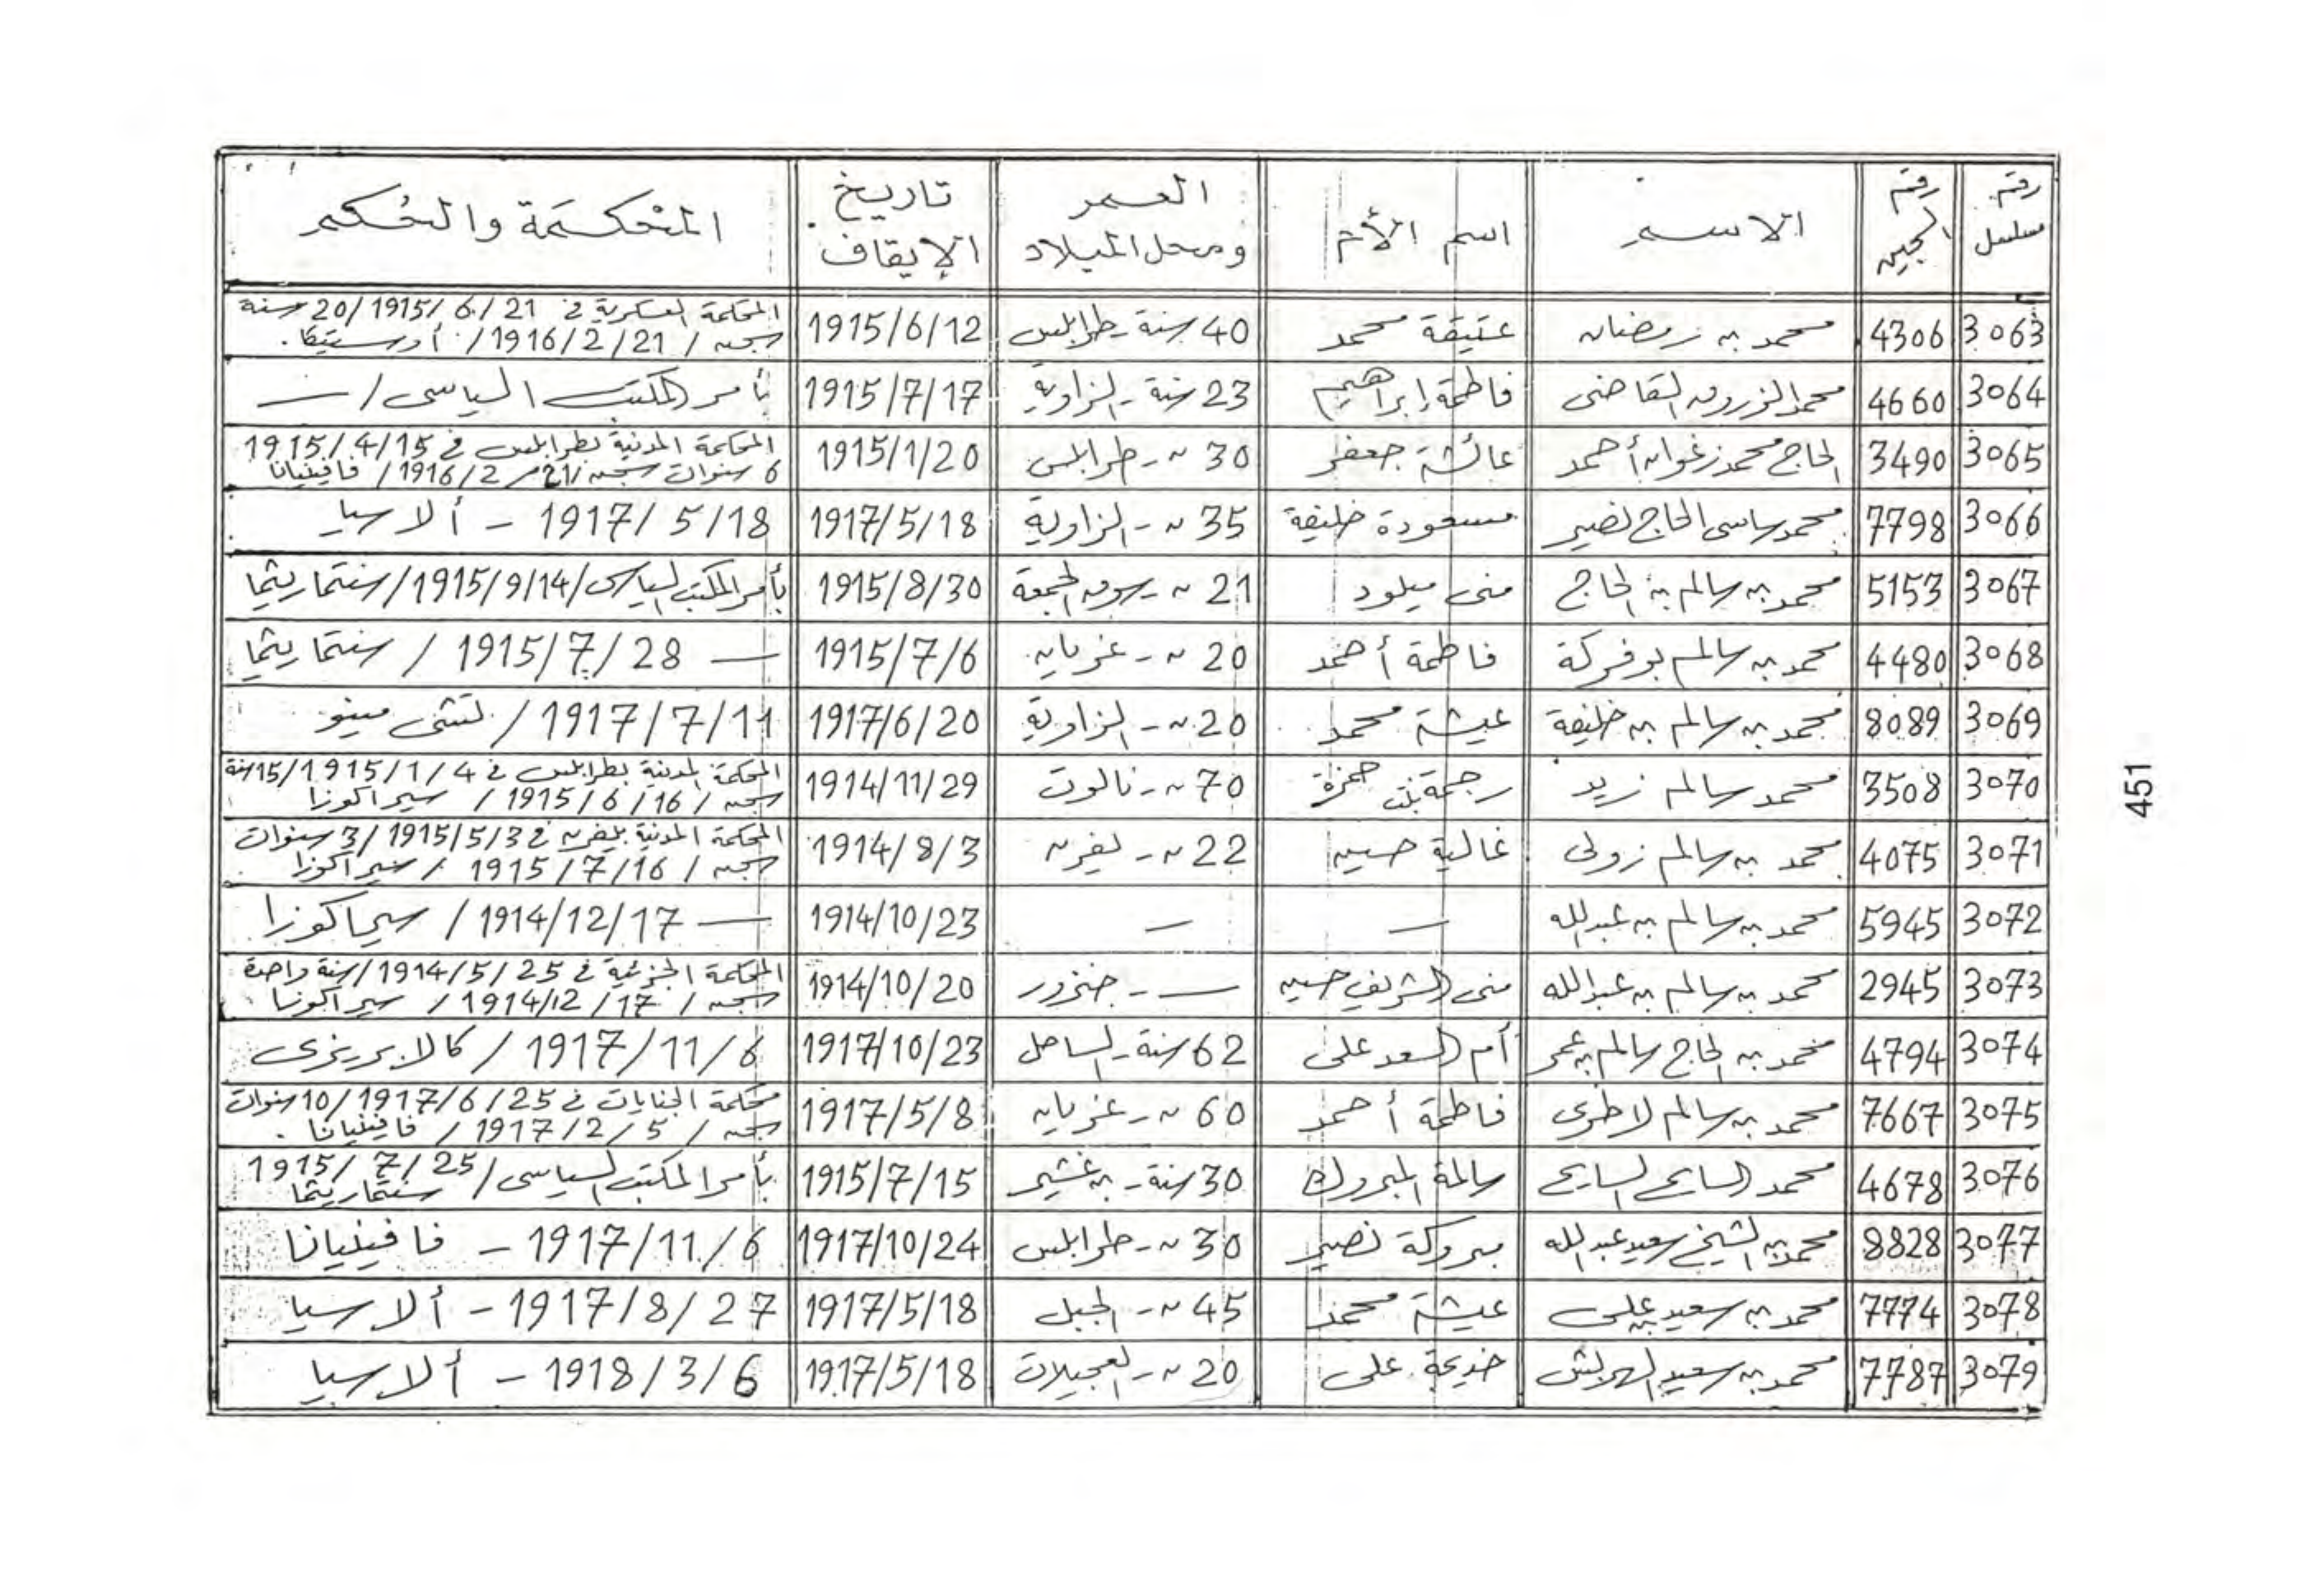 رقم مسلسل | رقم السجين | الاسم | اسم الأم | العمر ومحل الميلاد | تاريخ الإيقاف | المحكمة والحكم
3063 | 4306 | محمد بن رمضان | عتيقة محمد | 40 سنة - طرابلس | 1915/6/12 | المحكمة العسكرية في 1915/6/21 / 20 سنة
سجن / 1916/2/21 / أوستيكا.
3064 | 4660 | محمد الزروق القاضى | فاطمة إبراهيم | 23 سنة - الزاوية | 1915/7/17 | بأمر المكتب السياسى / —
3065 | 3490 | الحاج محمد زغوان أحمد | عائشة جعفر | 30 ~ - طرابلس | 1915/1/20 | المحكمة المدنية بطرابلس في 1915/4/15
6 سنوات سجن / 1916/2/21 / فافينيانا
3066 | 7798 | محمد ساسى الحاج نصير | مسعودة خليفة | 35 ~ - الزاوية | 1917/5/18 | 1917/5/18 - ألاسيا
3067 | 5153 | محمد بن سالم بن الحاج | منى ميلود | 21 ~ - سوق الجمعة | 1915/8/30 | بأمر المكتب السياسى / 1915/9/14 / سنتماريثما
3068 | 4480 | محمد بن سالم بوفركة | فاطمة أحمد | 20 ~ - غريان | 1915/7/6 | — 1915/7/28 / سنتماريثما
3069 | 8089 | محمد بن سالم بن خليفة | عيشة محمد | 20 ~ - الزاوية | 1917/6/20 | 1917/7/11 / لتشى مينو
3070 | 3508 | محمد سالم زيد | رحمة بنت حمزة | 70 ~ - نالوت | 1914/11/29 | المحكمة المدنية بطرابلس في 1915/1/4 / 15 سنة
سجن / 1915/6/16 / سيراكوزا
3071 | 4075 | محمد بن سالم زولى | غالية حسين | 22 ~ - يفرن | 1914/8/3 | المحكمة المدنية بيفرن في 1915/5/3 / 3 سنوات
سجن / 1915/7/16 / سيراكوزا
3072 | 5945 | محمد بن سالم بن عبدالله | — | — | 1914/10/23 | — 1914/12/17 / سيراكوزا
3073 | 2945 | محمد بن سالم بن عبدالله | منى الشريف حسين | — - جنزور | 1914/10/20 | المحكمة الجزئية في 1914/5/25 / سنة واحدة
سجن / 1914/12/17 / سيراكوزا
3074 | 4794 | محمد بن الحاج سالم بن عمر | أم السعد على | 62 سنة - الساحل | 1917/10/23 | 1917/11/6 / كالابريزى
3075 | 7667 | محمد بن سالم لاطرى | فاطمة أحمد | 60 ~ - غريان | 1917/5/8 | محكمة الجنايات في 1917/6/25 / 10 سنوات
سجن / 1917/2/5 / فافينيانا.
3076 | 4678 | محمد السايح السايح | سالمة المبروك | 30 سنة - بن غشير | 1915/7/15 | بأمر المكتب السياسى / 1915/7/25
سنتماريثما
3077 | 8828 | محمد بن الشيخ سعيد عبدالله | مبروكة نصير | 30 ~ - طرابلس | 1917/10/24 | 1917/11/6 - فافينيانا
3078 | 7774 | محمد بن سعيد بن على | عيشة محمد | 45 ~ - الجبل | 1917/5/18 | 1917/8/27 - ألاسيا
3079 | 7787 | محمد بن سعيد | خديجة على | 20 ~ - العجيلات | 1917/5/18 | 1918/3/6 - ألاسيا
451